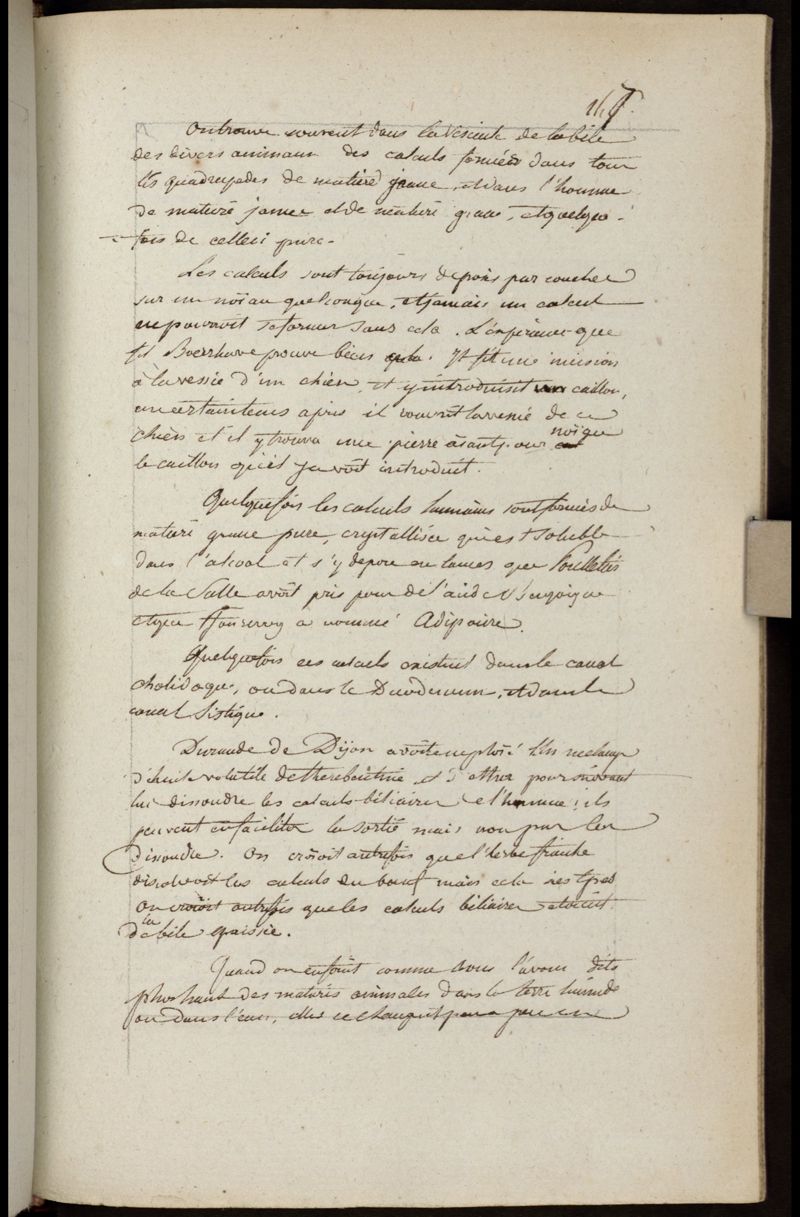 147.
on trouve souvent dans la vésicule de la bile
des divers animaux des calculs formés dans tous
les quadrupedes de matiere jaune, et dans l'homme
de matiere jaune et de matiere grasse, et quelque-
fois de celleci pure.
Les calculs sont toujours deposés par couches
sur un noïau quelconque, et jamais un calcul
ne pouroit se former sans cela. L'experience que
fit Boerrhave prouve bien cela. Il fit une incision
à la vessie d'un chien, et y introduisit un caillou,
un certain tems après il rouvrit la vessie de ce
chien et il y trouva une pierre aïant pour noïau
le caillou qu'il y avoit introduit.
Quelquefois les calculs humains sont formés de
matiere grasse pure, crystallisée qui est soluble
dans l'alcool et s'y depose en lames que Poulletier
de la Salle avoit pris pour de l'acide Benzoïque
et que Fourcroy a nommé Adipocire.
Quelquefois ces calculs existent dans le canal
cholidoque, ou dans le Duodenum, et dans le
canal Sistique.
Durande de Dijon avoit emploïé un melange
d'huile volatile de therebentine et d'ether pour suivant
lui dissoudre les calculs biliaires de l'homme; ils
peuvent en faciliter la sortie mais non pas les
dissoudre. On croioit autrefois que l'herbe fraiche
dissolvoit les calculs du boeuf mais cela n'est pas
on croioit autrefois que les calculs biliaires etoient
de la bile epaissie.
Quand on enfouit comme nous l'avons dit
plus haut des matieres animales dans la terre humide
ou dans l'eau, elles se changent peu a peu en